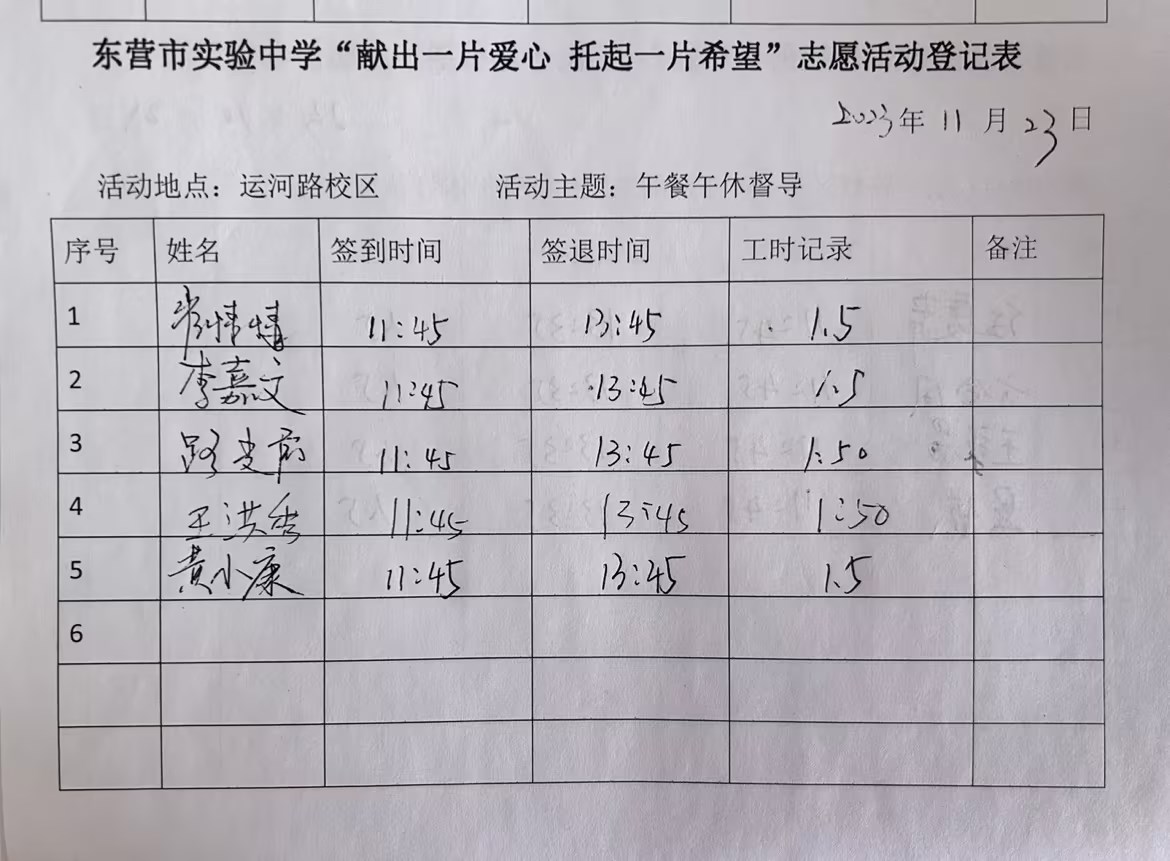 东营市实验中学“献出一片爱心 托起一片希望”志愿活动登记表
2023年 11 月 23 日
活动地点：运河路校区 活动主题：午餐午休督导
序号 姓名 签到时间 签退时间 工时记录 备注
1 情情 11:45 13:45 1.5
2 李嘉文 11:45 13:45 1.5
3 路 11:45 13:45 1:50
4 王洪秀 11:45 13:45 1:50
5 黄小康 11:45 13:45 1.5
6